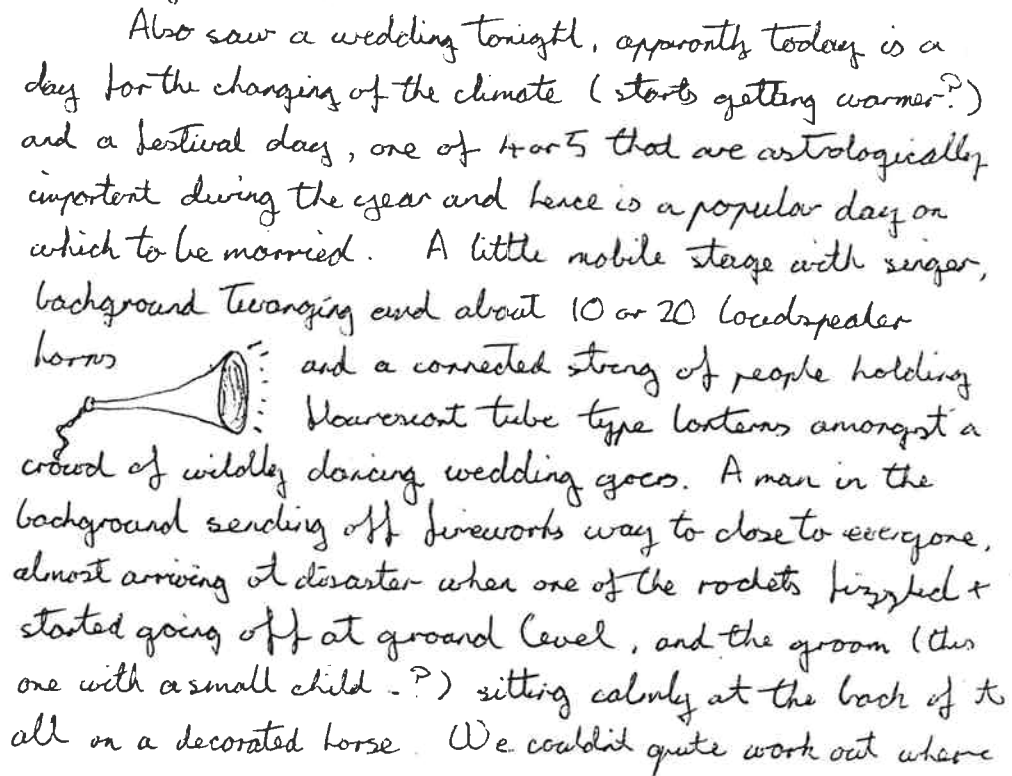 Also saw a wedding tonight, apparontly today is a
day for the changing of the climate (starts getting warmer?)
and a festival day, one of 4 or 5 that are astrologically
important during the year and hence is a popular day on
which to be married. A little mobile stage with singer,
background twanging and about 10 or 20 loudspeaker
horns and a connected string of people holding
flourescent tube type lanterns amongst a
crowd of wildly dancing wedding goers. A man in the
background sending off fireworks way to close to everyone,
almost arriving at disaster when one of the rockets fizzled +
started going off at ground level, and the groom (this
one with a small child - ?) sitting calmly at the back of it
all on a decorated horse. We couldn't quite work out where